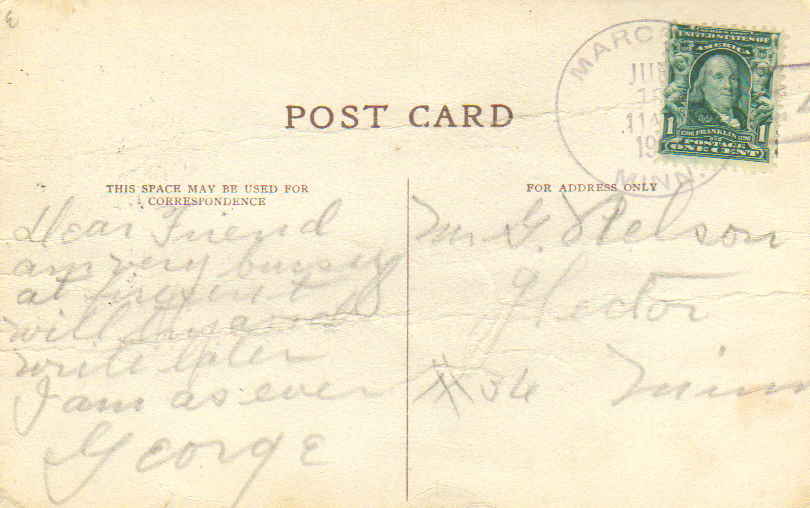 POST CARD
MARC
JUN
11A
19
MINN
UNITED STATES OF
AMERICA
1 FRANKLIN 1
POSTAGE
ONE CENT
THIS SPACE MAY BE USED FOR
CORRESPONDENCE
Dear Friend
am very bussy
at present
will
write later
I am as ever
George
FOR ADDRESS ONLY
Mr G. Nelson
Hector
#36 Minn